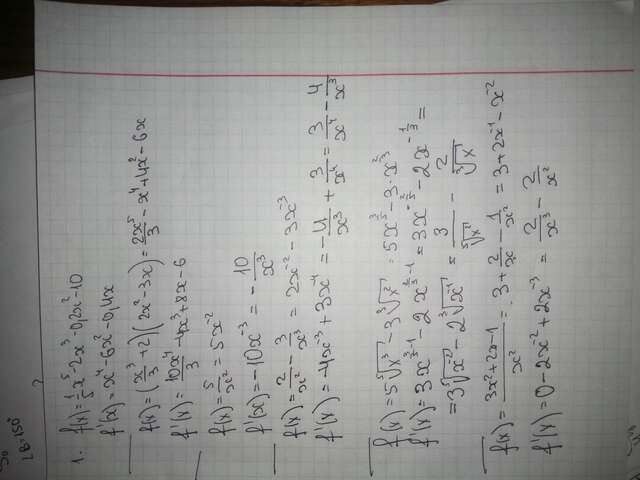 1. f(x) = 1/5 x⁵ - 2x³ - 0,2x² - 10
f'(x) = x⁴ - 6x² - 0,4x
f(x) = (x³/3 + 2)(2x² - 3x) = 2x⁵/3 - x⁴ + 4x² - 6x
f'(x) = 10x⁴/3 - 4x³ + 8x - 6
f(x) = 5/x² = 5x⁻²
f'(x) = -10x⁻³ = -10/x³
f(x) = 2/x² - 3/x³ = 2x⁻² - 3x⁻³
f'(x) = -4x⁻³ + 3x⁻⁴ = -4/x³ + 3/x⁴ = 3/x⁴ - 4/x³
f(x) = 5⁵√x³ - 3³√x² = 5x^(3/5) - 3·x^(2/3)
f'(x) = 3x^(3/5 - 1) - 2x^(2/3 - 1) = 3x^(-2/5) - 2x^(-1/3) =
= 3⁵√x⁻² - 2³√x⁻¹ = 3/⁵√x² - 2/³√x
f(x) = (3x² + 2x - 1)/x² = 3 + 2/x - 1/x² = 3 + 2x⁻¹ - x⁻²
f'(x) = 0 - 2x⁻² + 2x⁻³ = 2/x³ - 2/x²